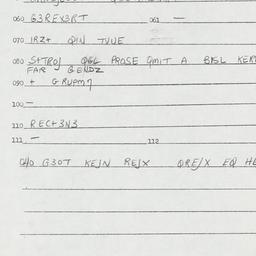 060 G3REX3RT 061 —
070 IRZ+ QIN TVUE
080 S+TROJ QGL PROSE QMIT A BISL KER
FAR BENDZ
090 + GRUPM7
100 —
110 REC+3N3
111 — 112
G3OT KEJN REJX QREJX EQ HE